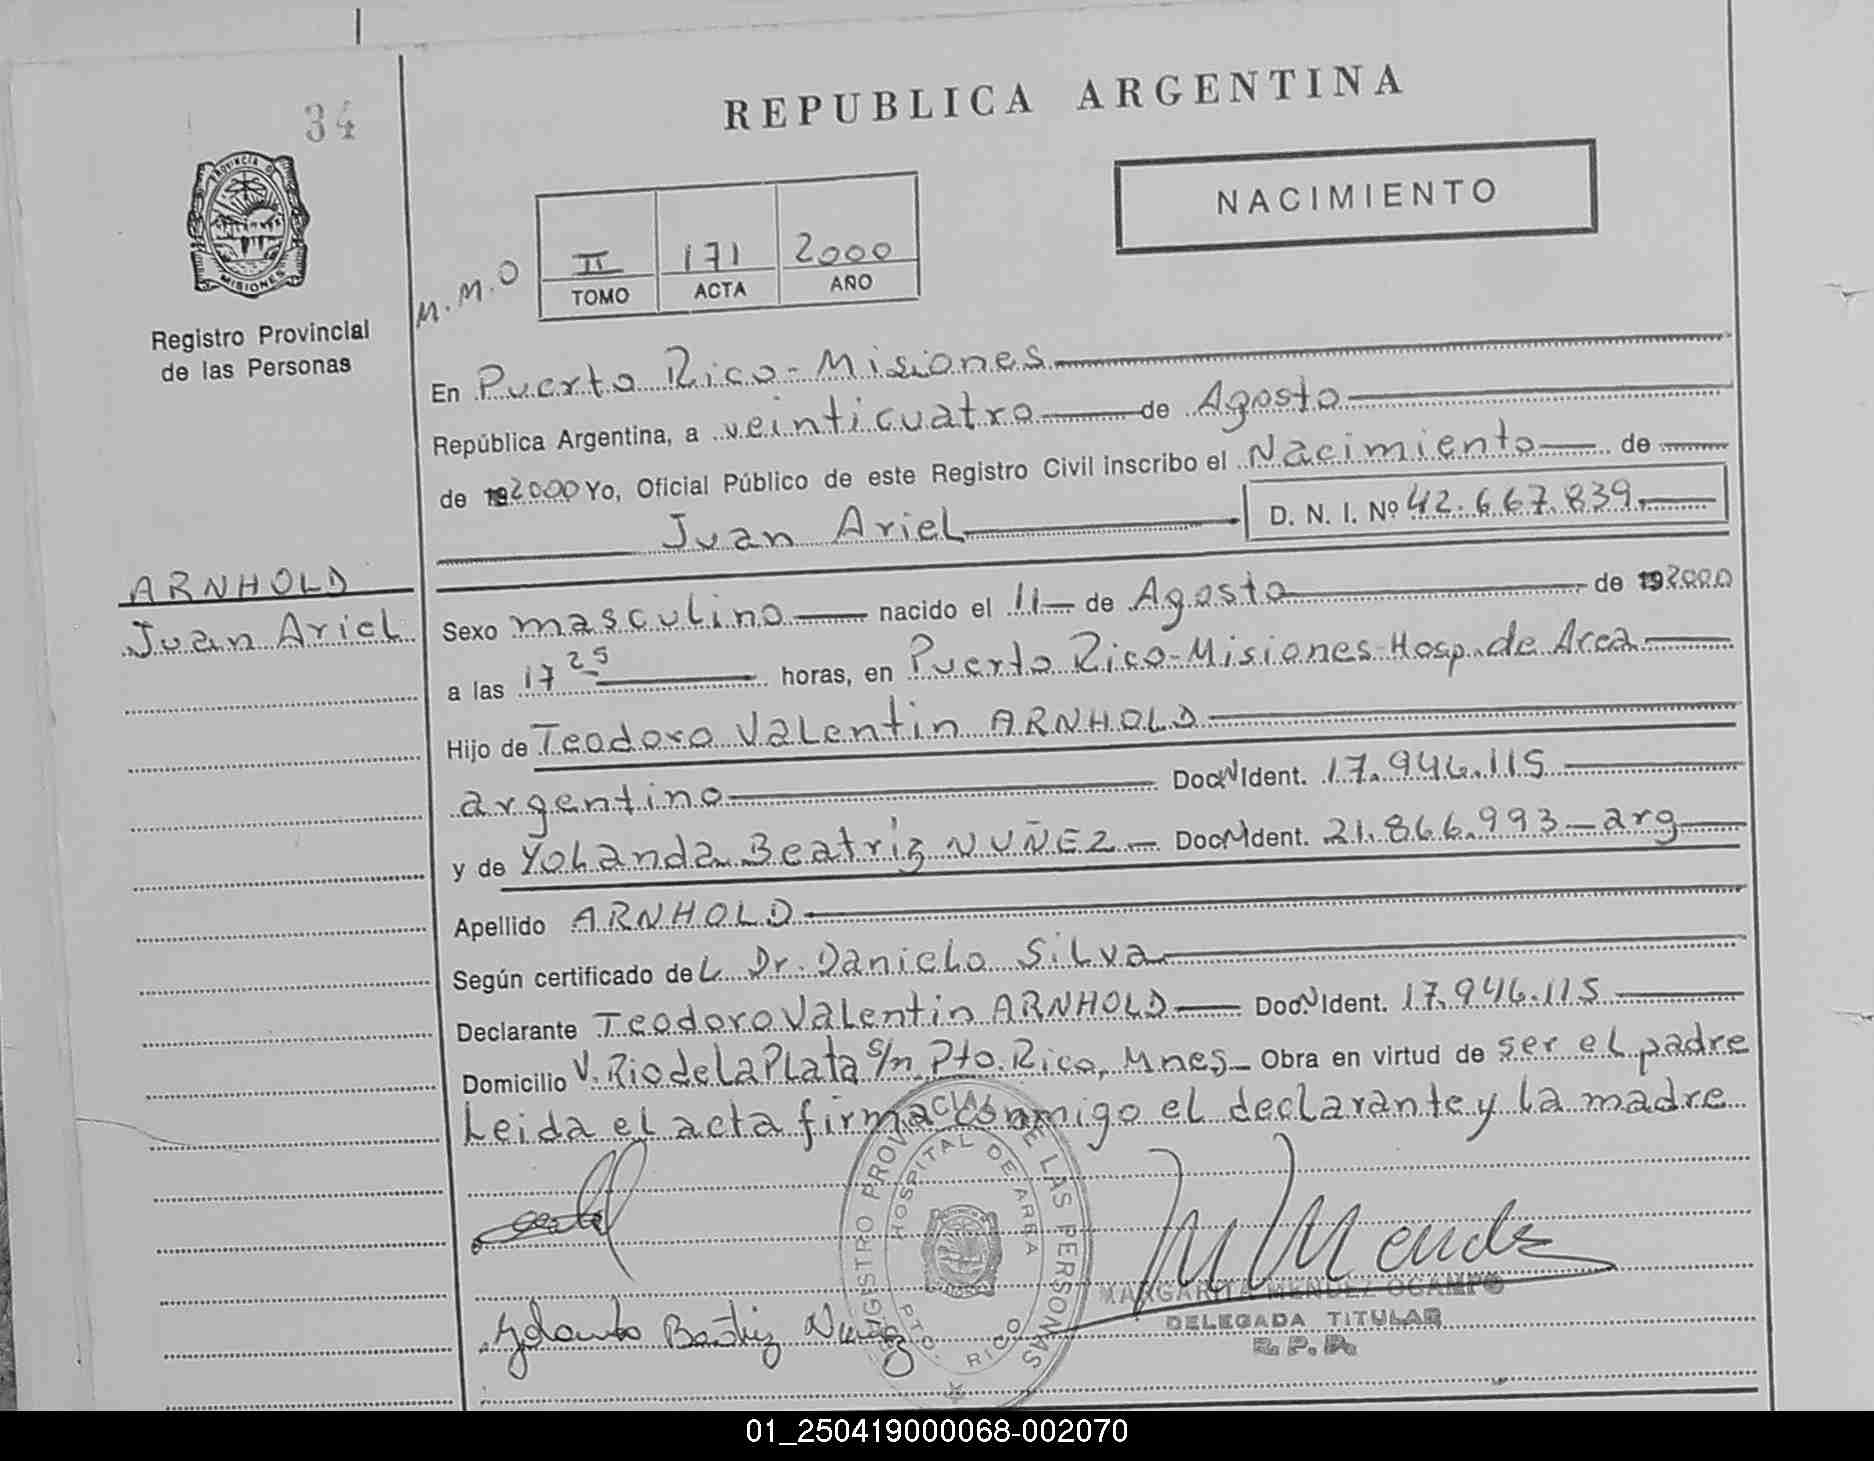 34
REPUBLICA ARGENTINA
NACIMIENTO
PROVINCIA DE
MISIONES
Registro Provincial
de las Personas
M.M.O
II 171 2000
TOMO ACTA AÑO
En Puerto Rico - Misiones
República Argentina, a veinticuatro de Agosto
de 192000 Yo, Oficial Público de este Registro Civil inscribo el Nacimiento de
Juan Ariel D. N. I. Nº 42.667.839.
ARNHOLD
Juan Ariel
Sexo masculino nacido el 11 de Agosto de 192000
a las 17 25 horas, en Puerto Rico-Misiones-Hosp. de Area
Hijo de Teodoro Valentin ARNHOLD
argentino Doc. N Ident. 17.946.115
y de Yolanda Beatriz NUÑEZ Doc. N Ident. 21.866.993 - arg
Apellido ARNHOLD
Según certificado del Dr. Danielo Silva
Declarante Teodoro Valentin ARNHOLD Doc. N Ident. 17.946.115
Domicilio V. Rio de La Plata s/n Pto. Rico, Mnes Obra en virtud de ser el padre
Leida el acta firma conmigo el declarante y la madre
REGISTRO PROVINCIAL DE LAS PERSONAS
HOSPITAL DE AREA
PTO. RICO
M Mendez
MARGARITA MENDEZ OCAMPO
DELEGADA TITULAR
R. P. P.
Yolanda Beatriz Nuñez
01_250419000068-002070